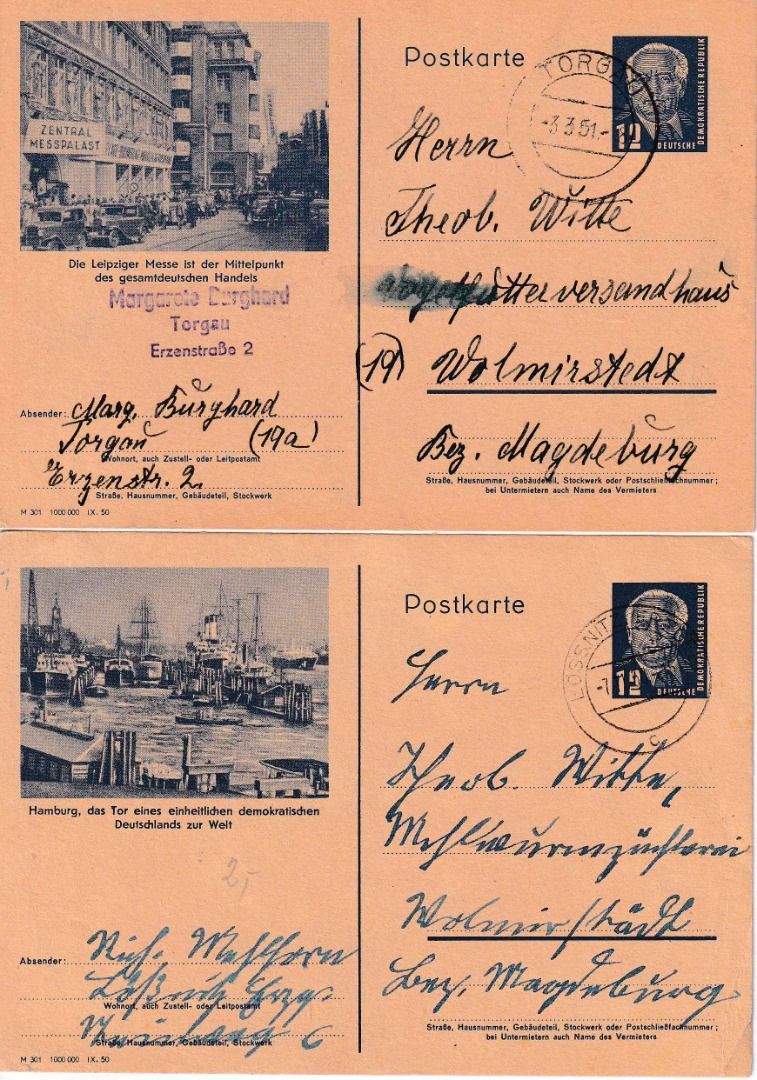 ZENTRAL
MESSPALAST
Die Leipziger Messe ist der Mittelpunkt
des gesamtdeutschen Handels
Margarete Burghard
Torgau
Erzenstraße 2
Absender: Marg. Burghard
Torgau (19a)
Wohnort, auch Zustell- oder Leitpostamt
Erzenstr. 2.
Straße, Hausnummer, Gebäudeteil, Stockwerk
M 301 1000 000 IX. 50
Postkarte
TORGAU
-3.3.51.-
12
DEUTSCHE
DEMOKRATISCHE REPUBLIK
Herrn
Theob. Witte
Vogelfutterversandhaus
(19) Wolmirstedt
Bez. Magdeburg
Straße, Hausnummer, Gebäudeteil, Stockwerk oder Postschließfachnummer;
bei Untermietern auch Name des Vermieters
Hamburg, das Tor eines einheitlichen demokratischen
Deutschlands zur Welt
2,-
Absender: Rich. Mehlhorn
Lößnitz Erzg.
Wohnort, auch Zustell- oder Leitpostamt
Straße, Hausnummer, Gebäudeteil, Stockwerk
M 301 1000 000 IX. 50
Postkarte
LÖSSNIT
12
DEUTSCHE
DEMOKRATISCHE REPUBLIK
c
Herrn
Theob. Witte,
Mehlwurmzüchterei
Wolmirstädt
Bez. Magdeburg
Straße, Hausnummer, Gebäudeteil, Stockwerk oder Postschließfachnummer;
bei Untermietern auch Name des Vermieters